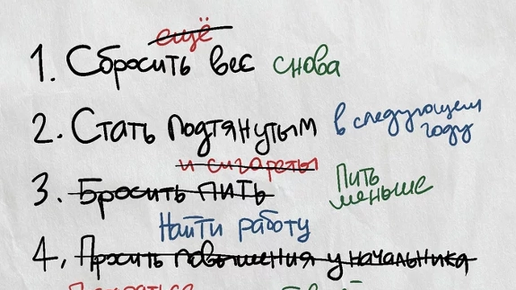 ещё
1. Сбросить вес снова
2. Стать подтянутым в следующем году
и сигареты
3. Бросить пить Пить меньше
Найти работу
4. Просить повышения у начальника